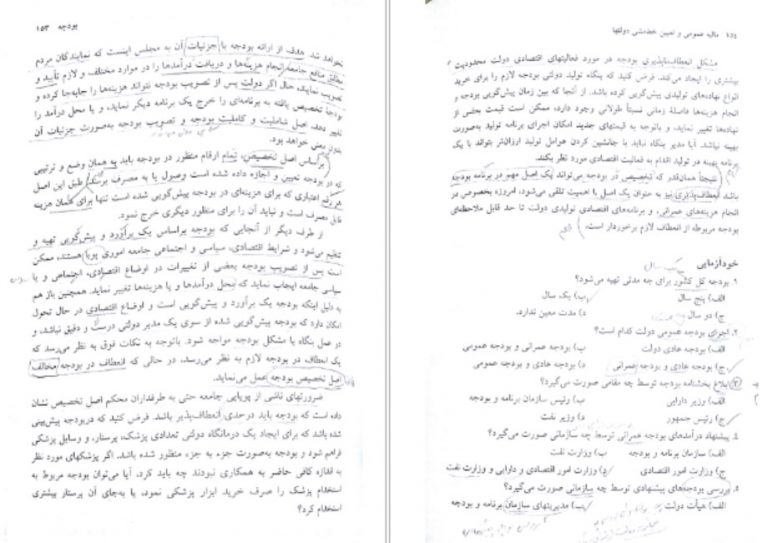 بودجه ۱۵۳
نخواهد شد. هدف از ارائه بودجه با جزئیات آن به مجلس اینست که نمایندگان مردم
مطابق منافع جامعه انجام هزینه‌ها و دریافت درآمدها را در موارد مختلف و لازم تأیید و
تصویب نمایند، حال اگر دولت پس از تصویب بودجه بتواند هزینه‌ها را جابه‌جا کرده و
بودجه تخصیص یافته به برنامه‌ای را خرج یک برنامه دیگر نماید، و یا محل درآمد را
تغییر دهد، اصل شاملیت و کاملیت بودجه و تصویب بودجه به‌صورت جزئیات آن
بدون معنی خواهد بود.
براساس اصل تخصیص، تمام ارقام منظور در بودجه باید به همان وضع و ترتیبی
که در بودجه تعیین و اجازه داده شده است وصول یا به مصرف برسند، طبق این اصل
هر رقم اعتباری که برای هزینه‌ای در بودجه پیش‌گویی شده است تنها برای همان هزینه
قابل مصرف است و نباید آن را برای منظور دیگری خرج نمود.
از طرف دیگر از آنجایی که بودجه براساس یک برآورد و پیش‌گویی تهیه و
تنظیم می‌شود و شرایط اقتصادی، سیاسی و اجتماعی جامعه اموری پویا هستند، ممکن
است پس از تصویب بودجه بعضی از تغییرات در اوضاع اقتصادی، اجتماعی و یا
سیاسی جامعه ایجاب نماید که محل درآمدها و یا هزینه‌ها تغییر نماید. همچنین باز هم
به دلیل اینکه بودجه یک برآورد و پیش‌گویی است و اوضاع اقتصادی در حال تحول
امکان دارد که بودجه پیش‌گویی شده از سوی یک مدیر دولتی درست و دقیق نباشد، و
در عمل بنگاه با مشکل بودجه مواجه شود. باتوجه به نکات فوق به نظر می‌رسد که
یک انعطاف در بودجه لازم به نظر می‌رسد، در حالی که انعطاف در بودجه مخالف
اصل تخصیص بودجه عمل می‌نماید.
ضرورتهای ناشی از پویایی جامعه حتی به طرفداران محکم اصل تخصیص نشان
داده است که بودجه باید درحدی انعطاف‌پذیر باشد. فرض کنید که دربودجه پیش‌بینی
شده باشد که برای ایجاد یک درمانگاه دولتی تعدادی پزشک، پرستار، و وسایل پزشکی
فراهم شود و بودجه به‌صورت جزء به جزء منظور شده باشد. اگر پزشکهای مورد نظر
به اندازه کافی حاضر به همکاری نبودند چه باید کرد. آیا می‌توان بودجه مربوط به
استخدام پزشک را صرف خرید ابزار پزشکی نمود، یا به‌جای آن پرستار بیشتری
استخدام کرد؟
۱۵۴ مالیه عمومی و تعیین خط‌مشی دولتها
مشکل انعطاف‌ناپذیری بودجه در مورد فعالیتهای اقتصادی دولت محدودیت
بیشتری را ایجاد می‌کند. فرض کنید که بنگاه تولید دولتی بودجه لازم را برای خرید
انواع نهاده‌های تولیدی پیش‌گویی کرده باشد. از آنجا که بین زمان پیش‌گویی بودجه و
انجام هزینه‌ها فاصله زمانی نسبتاً طولانی وجود دارد، ممکن است قیمت بعضی از
نهادها تغییر نماید، و باتوجه به قیمتهای جدید امکان اجرای برنامه تولید به‌صورت
بهینه نباشد. آیا مدیر بنگاه نباید با جانشین کردن عوامل تولید ارزان‌تر بتواند با یک
برنامه بهینه در تولید اقدام به فعالیت اقتصادی مورد نظر بکند.
نتیجتاً همان‌قدر که تخصیص در بودجه می‌تواند یک اصل مهم در برنامه بودجه
باشد انعطاف‌پذیری نیز به عنوان یک اصل با اهمیت تلقی می‌شود، امروزه بخصوص در
انجام هزینه‌های عمرانی، و برنامه‌های اقتصادی تولیدی دولت تا حد قابل ملاحظه‌ای
بودجه مربوطه از انعطاف لازم برخوردار است.
خودآزمایی
۱. بودجه کل کشور برای چه مدتی تهیه می‌شود؟
الف) پنج سال ب) یک سال
ج) دو سال د) مدت معین ندارد.
۲. اجزای بودجه عمومی دولت کدام است؟
الف) بودجه عادی دولت ب) بودجه عمرانی و بودجه عمومی
ج) بودجه عادی و بودجه عمرانی د) بودجه عادی و بودجه عمومی
۳. ابلاغ بخشنامه بودجه توسط چه مقامی صورت می‌گیرد؟
الف) وزیر دارایی ب) رئیس سازمان برنامه و بودجه
ج) رئیس جمهور د) وزیر نفت
۴. پیشنهاد درآمدهای بودجه عمرانی توسط چه سازمانی صورت می‌گیرد؟
الف) سازمان برنامه و بودجه ب) وزارت نفت
ج) وزارت امور اقتصادی د) وزارت امور اقتصادی و دارایی و وزارت نفت
۵. بررسی بودجه‌های پیشنهادی توسط چه سازمانی صورت می‌گیرد؟
الف) هیأت دولت ب) مدیریتهای سازمان برنامه و بودجه